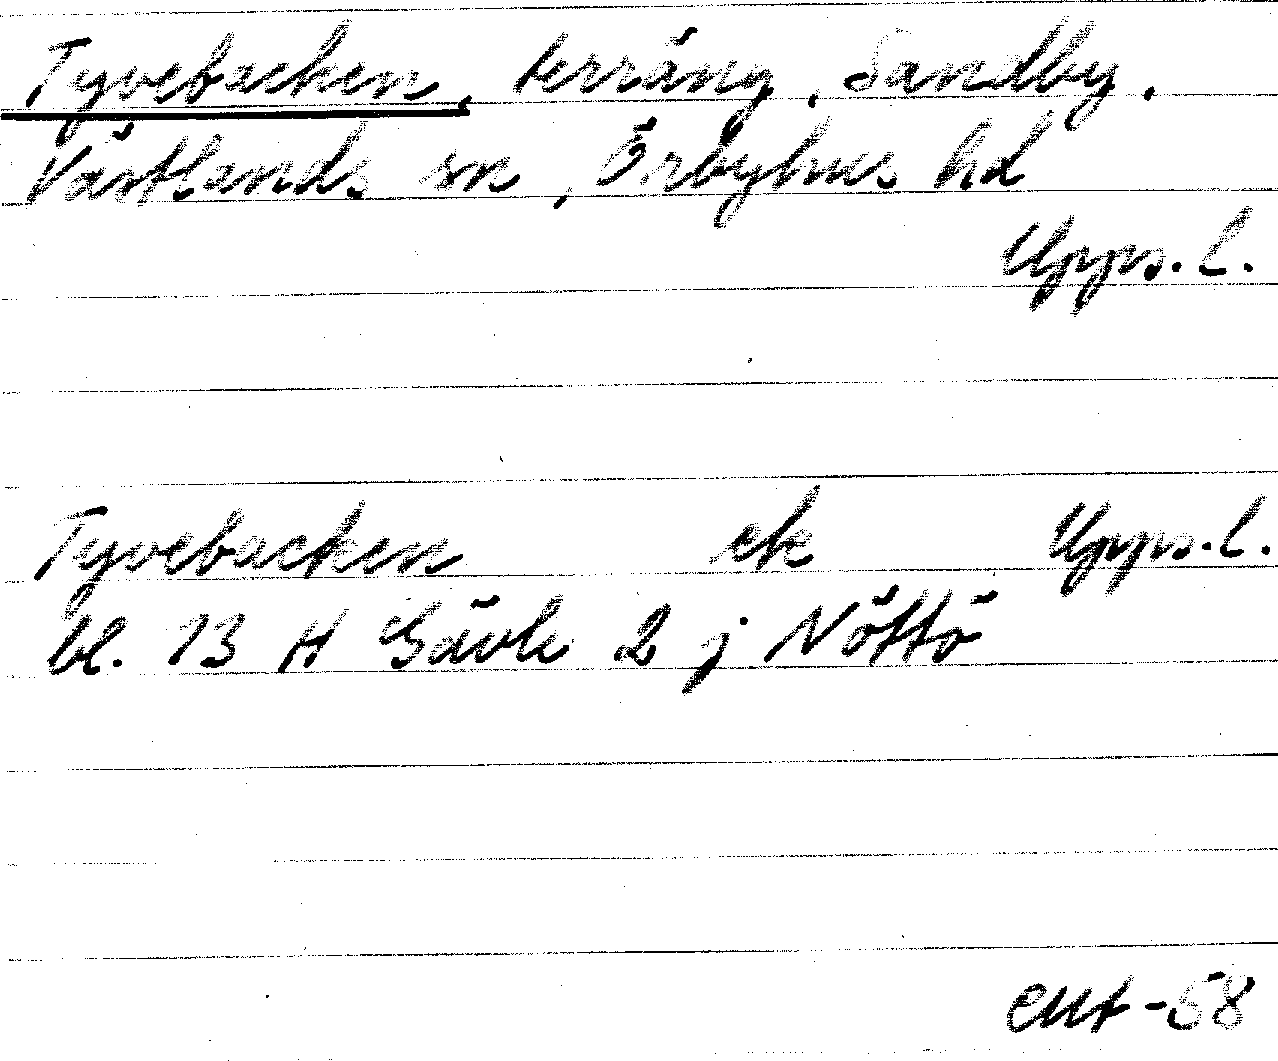 Tyvebacken, terräng, Sandby,
Västlands sn, Örbyhus hd
Upps. l.
Tyvebacken ek Upps. l.
bl. 13 H Gävle 2 j Nöttö
-58